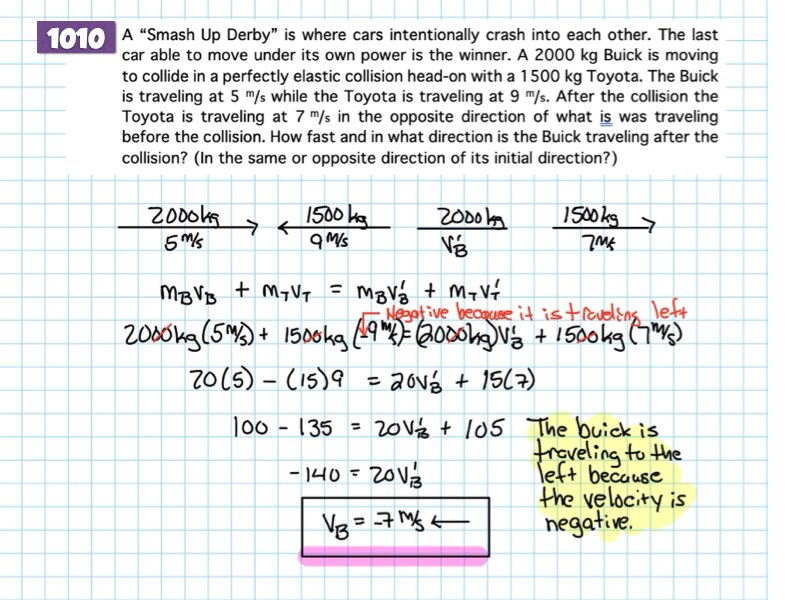 1010
A “Smash Up Derby” is where cars intentionally crash into each other. The last
car able to move under its own power is the winner. A 2000 kg Buick is moving
to collide in a perfectly elastic collision head-on with a 1500 kg Toyota. The Buick
is traveling at 5 m/s while the Toyota is traveling at 9 m/s. After the collision the
Toyota is traveling at 7 m/s in the opposite direction of what is was traveling
before the collision. How fast and in what direction is the Buick traveling after the
collision? (In the same or opposite direction of its initial direction?)
2000kg 1500 kg 2000 kg 1500 kg
5 m/s 9 m/s V'B 7 m/s
mBVB + mTVT = mBV'B + mTV'T
Negative because it is traveling left
2000kg(5 m/s) + 1500kg(-9 m/s) = (2000kg)V'B + 1500kg(7 m/s)
20(5) - (15)9 = 20V'B + 15(7)
100 - 135 = 20V'B + 105
-140 = 20V'B
VB = -7 m/s ←
The buick is
traveling to the
left because
the velocity is
negative.